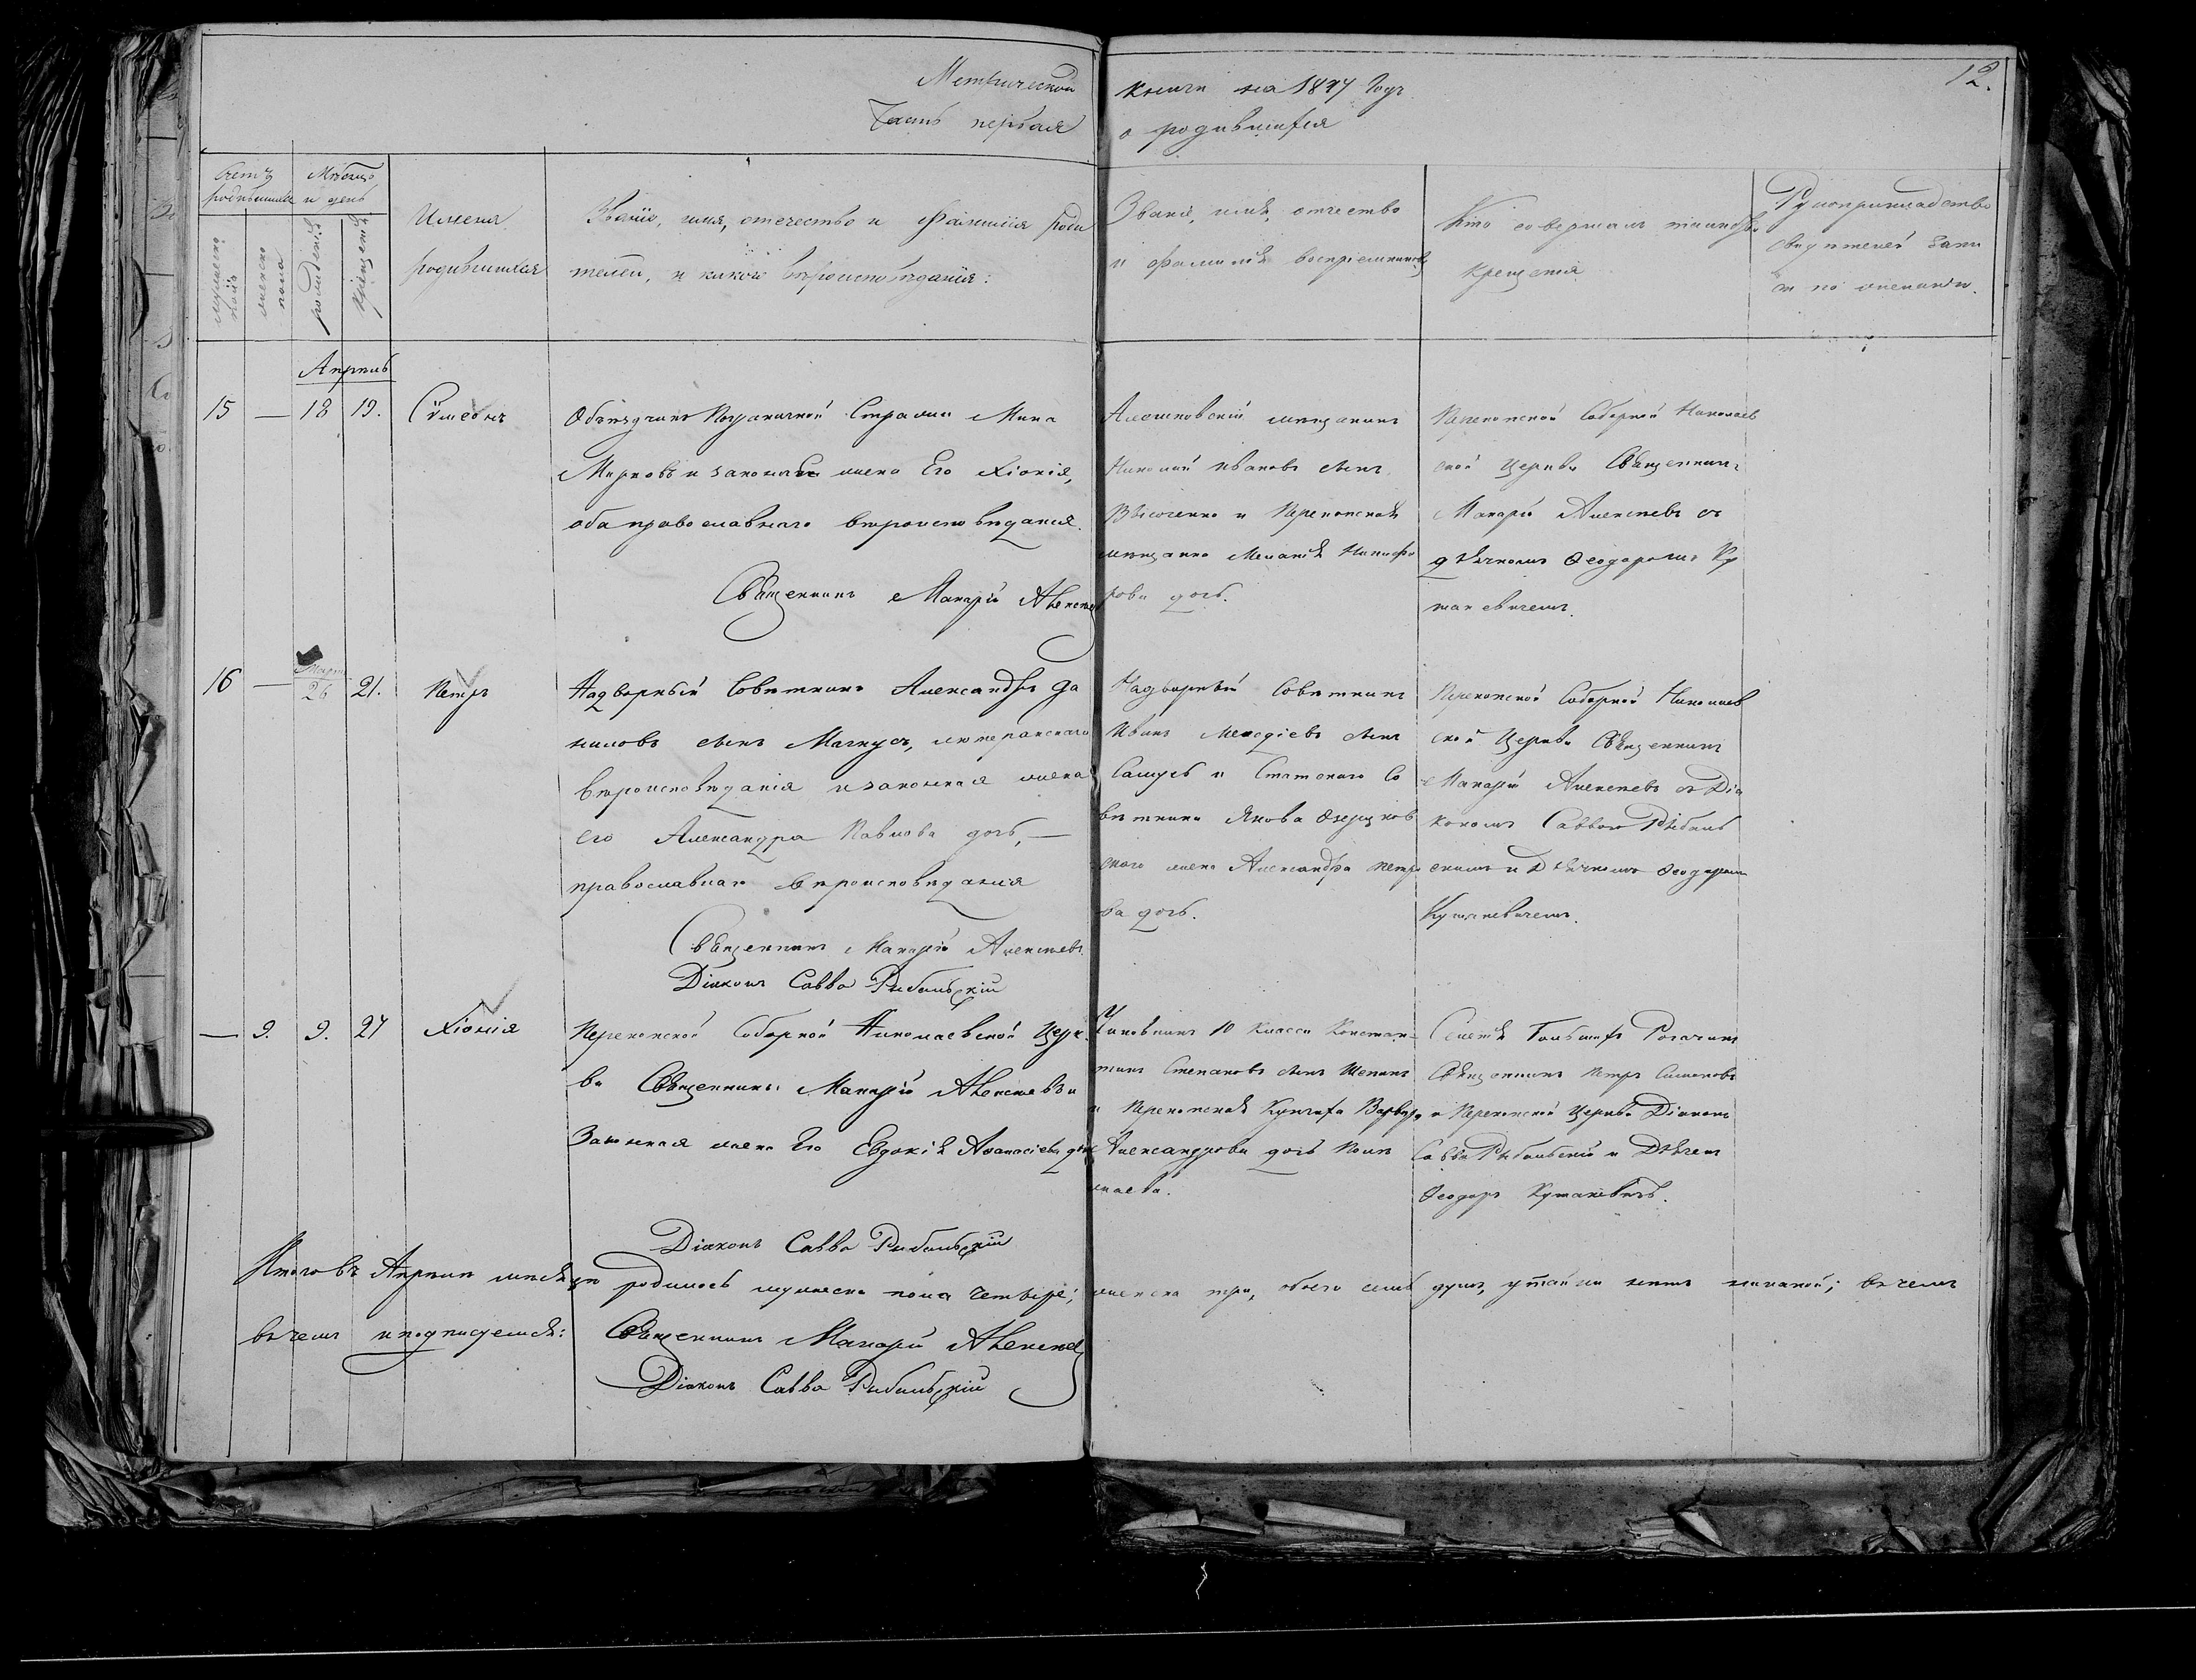 Метрической книги на 1847 годъ
12.
Часть первая о родившихся
Счетъ родившихся
Мѣсяцъ и день
мужеска пола
женска пола
рожденія
крещенія
Имена
родившихся
Званіе, имя, отечество и фамилія роди
телей, и какого вѣроисповѣданія:
Званіе, имя, отчество
и фамилія воспріемниковъ
Кто совершалъ таинство
крещенія
Рукоприкладство
свидѣтелей запи
си по желанію.
Апрѣль
15 — 18 19. Сѵмеонъ
Объѣздчикъ Пограничной Стражи Мина
Марковъ и законная жена Его Хіонія,
оба православнаго вѣроисповѣданія.
Священникъ Макарій Алексѣевъ
Алешковскій мѣщанинъ
Николай Ивановъ сынъ
Высоченко и Перекопская
мѣщанка Меланія Никифо
рова дочь.
Перекопской Соборной Николаев
ской Церкви Священникъ
Макарій Алексѣевъ съ
дьячкомъ Ѳеодоромъ Ку
накевичемъ.
16 — Март 26 21. Петръ
Надворный Совѣтникъ Александръ Да
ниловъ сынъ Магнусъ, лютеранскаго
вѣроисповѣданія и законная жена
его Александра Павлова дочь, —
православнаго вѣроисповѣданія
Священникъ Макарій Алексѣевъ
Діаконъ Савва Рыбальскій
Надворный Совѣтникъ
Иванъ сынъ
и Статскаго Со
вѣтника Якова
скаго жена Александра Петро
ва дочь.
Перекопской Соборной Николаев
ской Церкви Священникъ
Макарій Алексѣевъ съ Діа
кономъ Саввою Рыбаль
скимъ и Дьячкомъ Ѳеодоромъ
— 9. 9. 27 Хіонія
Перекопской Соборной Николаевской Церк
ви Священникъ Макарій Алексѣевъ и
Законная жена Его Евдокія Аѳанасіева дочь
Діаконъ Савва Рыбальскій
Чиновникъ 10 класса Констан
тинъ Степановъ сынъ
и Перекопская Купчиха Варвара
Александрова дочь
Священникъ Петръ
и Перекопской Церкви Діаконъ
Савва Рыбальскій и Дьячекъ
Ѳеодоръ
Итого въ Апрѣлѣ мѣсяцѣ родилось мужеска пола четыре; женска три, обоего семь душъ, утайки нѣтъ никакой; въ чемъ
въ чемъ и подписуемся:
Священникъ Макарій Алексѣевъ
Діаконъ Савва Рыбальскій